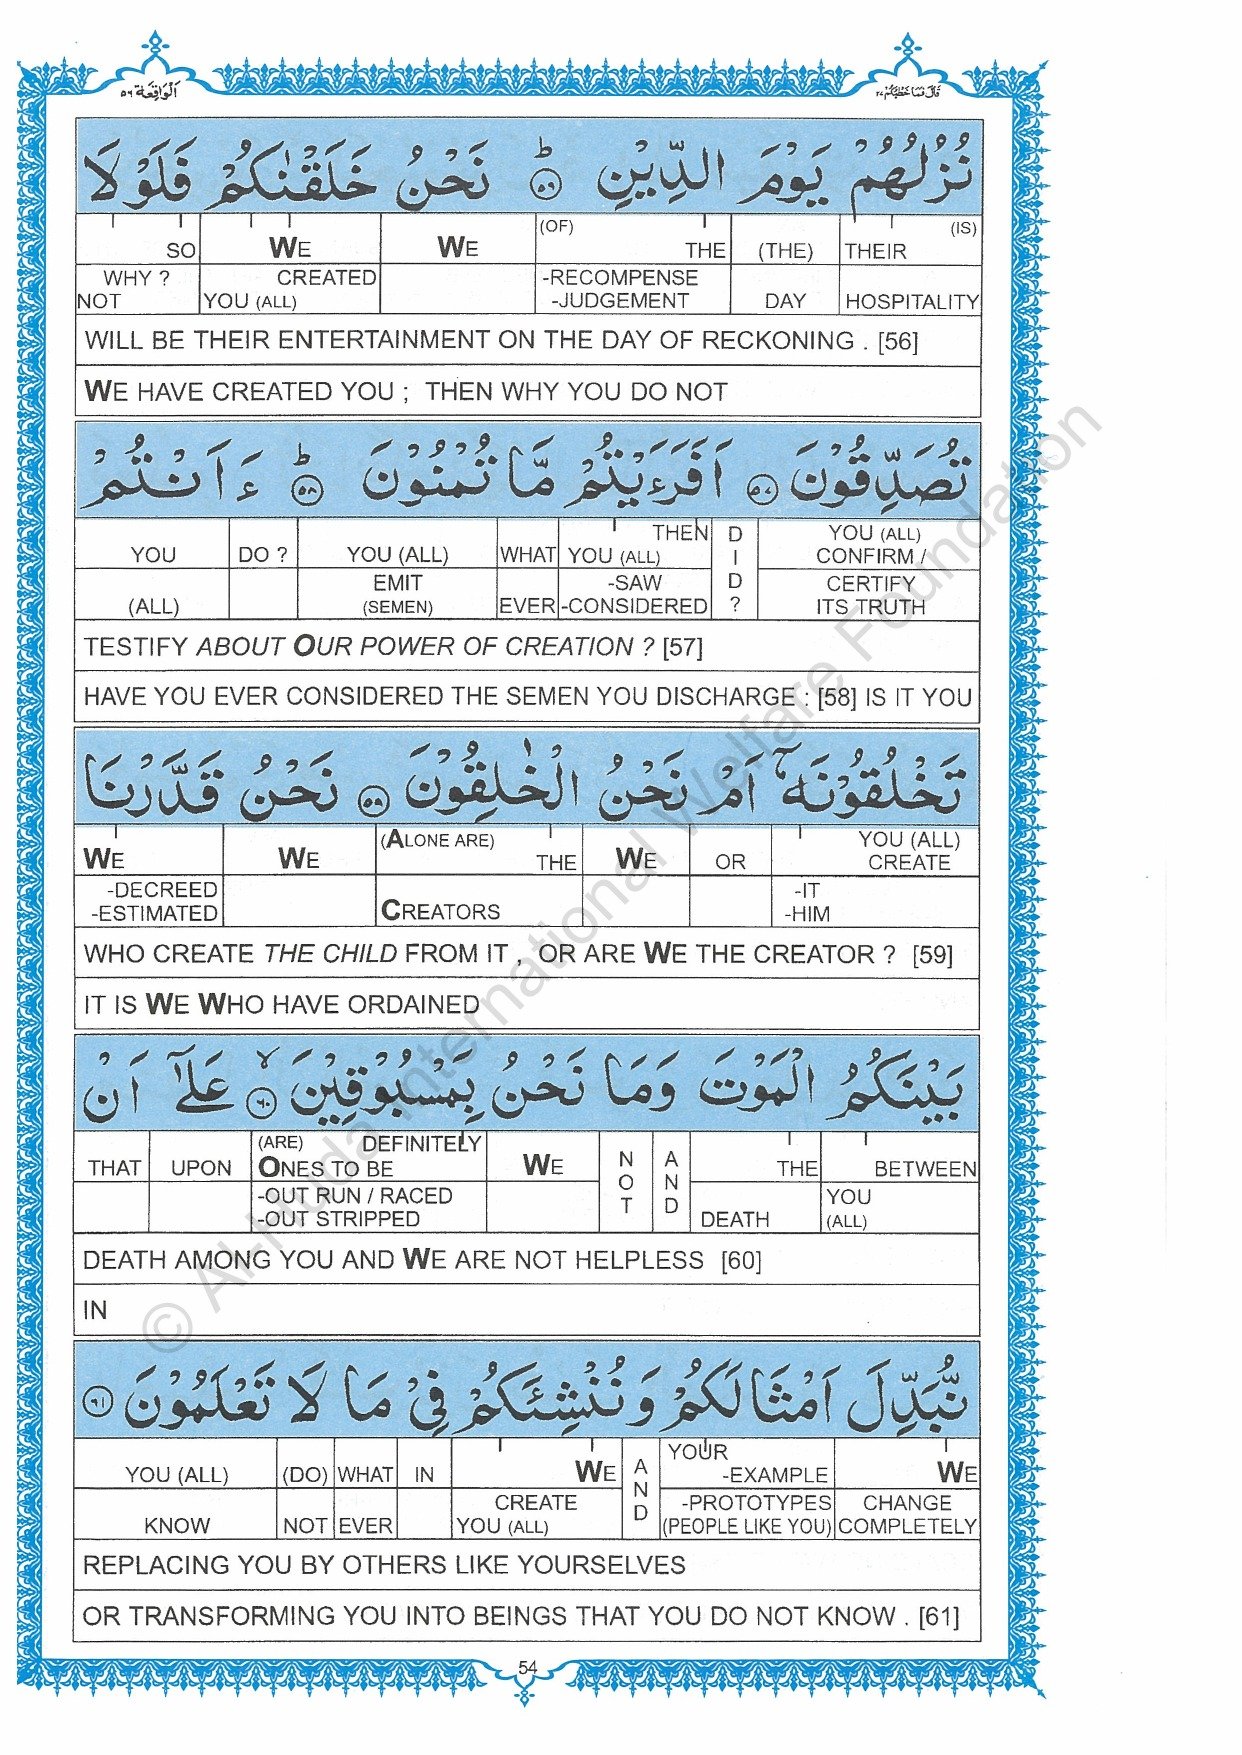 اَلْوَاقِعَة ٥٦
قَالَ فَمَا خَطْبُكُمْ ٢٧
نُزُلُهُمْ يَوْمَ الدِّيْنِ ؕ ٥٦ نَحْنُ خَلَقْنٰكُمْ فَلَوْلَا
SO WE WE (OF) THE (THE) THEIR (IS)
WHY ? NOT CREATED YOU (ALL) -RECOMPENSE -JUDGEMENT DAY HOSPITALITY
WILL BE THEIR ENTERTAINMENT ON THE DAY OF RECKONING . [56]
WE HAVE CREATED YOU ; THEN WHY YOU DO NOT
تُصَدِّقُوْنَ ٥٧ اَفَرَءَيْتُمْ مَّا تُمْنُوْنَ ؕ ٥٨ ءَاَنْتُمْ
YOU DO ? YOU (ALL) WHAT THEN YOU (ALL) DID? YOU (ALL) CONFIRM /
(ALL) EMIT (SEMEN) EVER -SAW -CONSIDERED CERTIFY ITS TRUTH
TESTIFY ABOUT OUR POWER OF CREATION ? [57]
HAVE YOU EVER CONSIDERED THE SEMEN YOU DISCHARGE : [58] IS IT YOU
تَخْلُقُوْنَهٗۤ اَمْ نَحْنُ الْخٰلِقُوْنَ ٥٩ نَحْنُ قَدَّرْنَا
WE WE (ALONE ARE) THE WE OR YOU (ALL) CREATE
-DECREED -ESTIMATED CREATORS -IT -HIM
WHO CREATE THE CHILD FROM IT , OR ARE WE THE CREATOR ? [59]
IT IS WE WHO HAVE ORDAINED
بَيْنَكُمُ الْمَوْتَ وَمَا نَحْنُ بِمَسْبُوْقِيْنَ ۙ ٦٠ عَلٰۤى اَنْ
THAT UPON (ARE) DEFINITELY ONES TO BE WE NOT AND THE BETWEEN
-OUT RUN / RACED -OUT STRIPPED DEATH YOU (ALL)
DEATH AMONG YOU AND WE ARE NOT HELPLESS [60]
IN
نُّبَدِّلَ اَمْثَالَكُمْ وَنُنْشِئَكُمْ فِيْ مَا لَا تَعْلَمُوْنَ ٦١
YOU (ALL) (DO) WHAT IN WE AND YOUR -EXAMPLE WE
KNOW NOT EVER CREATE YOU (ALL) -PROTOTYPES (PEOPLE LIKE YOU) CHANGE COMPLETELY
REPLACING YOU BY OTHERS LIKE YOURSELVES
OR TRANSFORMING YOU INTO BEINGS THAT YOU DO NOT KNOW . [61]
54
© Al-Huda International Welfare Foundation